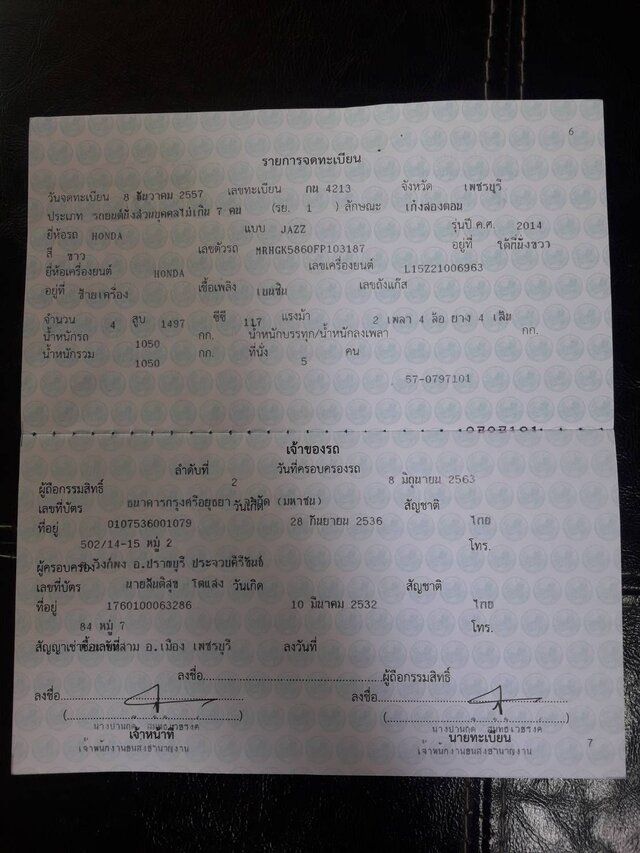 6
รายการจดทะเบียน
วันจดทะเบียน 8 ธันวาคม 2557 เลขทะเบียน กน 4213 จังหวัด เพชรบุรี
ประเภท รถยนต์นั่งส่วนบุคคลไม่เกิน 7 คน (รย. 1 ) ลักษณะ เก๋งสองตอน
ยี่ห้อรถ HONDA แบบ JAZZ รุ่นปี ค.ศ. 2014
สี ขาว เลขตัวรถ MRHGK5860FP103187 อยู่ที่ ใต้ที่นั่งขวา
ยี่ห้อเครื่องยนต์ HONDA เลขเครื่องยนต์ L15Z21006963
อยู่ที่ ซ้ายเครื่อง เชื้อเพลิง เบนซิน เลขถังแก๊ส
จำนวน 4 สูบ 1497 ซีซี 117 แรงม้า 2 เพลา 4 ล้อ ยาง 4 เส้น
น้ำหนักรถ 1050 กก. น้ำหนักบรรทุก/น้ำหนักลงเพลา กก.
น้ำหนักรวม 1050 กก. ที่นั่ง 5 คน
57-0797101
เจ้าของรถ
ลำดับที่ 2 วันที่ครอบครองรถ 8 มิถุนายน 2563
ผู้ถือกรรมสิทธิ์ ธนาคารกรุงศรีอยุธยา จำกัด (มหาชน)
เลขที่บัตร 0107536001079 วันเกิด 28 กันยายน 2536 สัญชาติ ไทย
ที่อยู่ 502/14-15 หมู่ 2 โทร.
อ.ปราณบุรี ประจวบคีรีขันธ์
ผู้ครอบครอง นายสันติสุข โตแสง
เลขที่บัตร 1760100063286 วันเกิด 10 มีนาคม 2532 สัญชาติ ไทย
ที่อยู่ 84 หมู่ 7 โทร.
อ.เมือง เพชรบุรี
สัญญาเช่าซื้อเลขที่ ลงวันที่
ลงชื่อ ผู้ถือกรรมสิทธิ์
ลงชื่อ ลงชื่อ
เจ้าหน้าที่ นายทะเบียน
เจ้าพนักงานขนส่งชำนาญงาน เจ้าพนักงานขนส่งชำนาญงาน
7